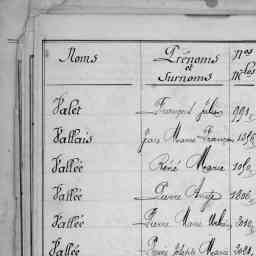 Noms Prénoms et Surnoms Nos Mles
Valet François Jules 991
Vallais Jean Marie François
Vallée René Marie 1050
Vallée Pierre Ange 1806
Vallée Pierre Marie 2010
Vallée Pierre Marie